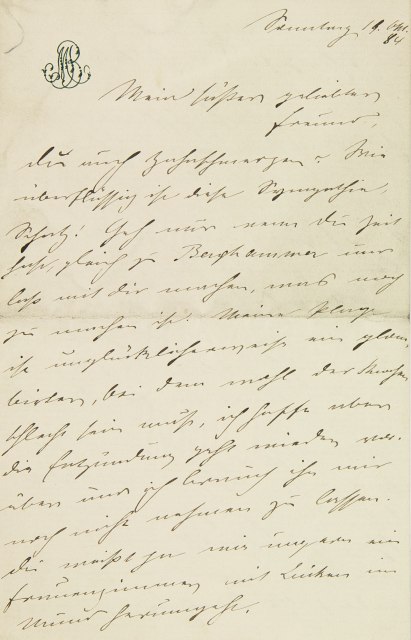 MB
Sonntag 19. Okt. 84
Mein süßer geliebter
Freund,
du auch Zahnschmerzen? Wie
überflüssig ist diese Sympathie,
Schatz! Geh nur wenn du Zeit
hast, gleich zu Berghammer und
laß mit dir machen, was noch
zu machen ist. Meine Plage
ist unglücklicherweise ein plom-
birter, bei dem wohl der Knochen
schlecht sein muß, ich hoffe aber
die Entzündung geht wieder vor-
über und ich brauch ihn mir
noch nicht nehmen zu lassen.
Du weißt ja wie ungern ein
Frauenzimmer mit Lücken im
Mund herumgeht.